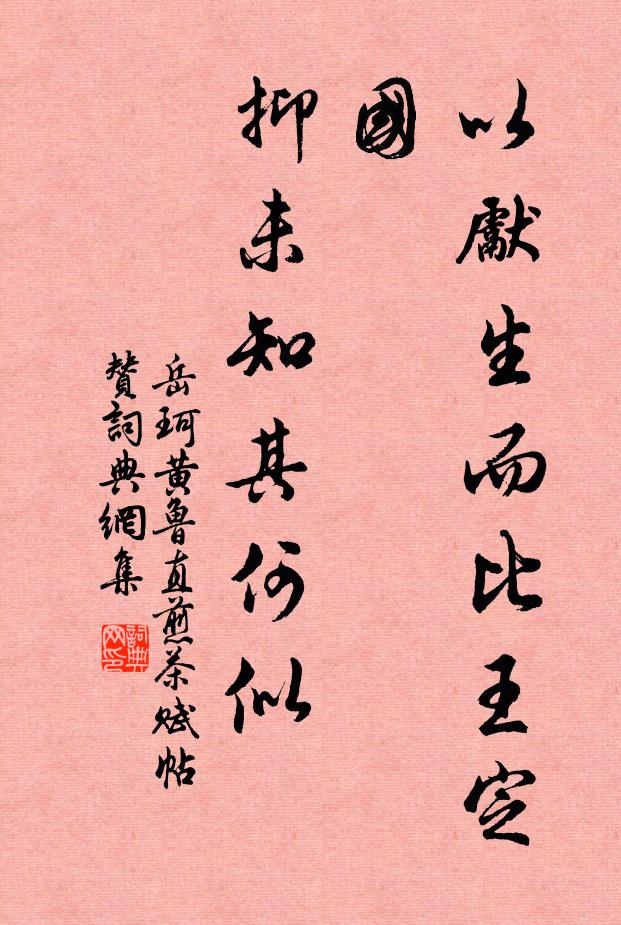 以獻生而比王定
國
抑未知其何似
岳珂黃魯直煎茶賦帖
贊詞典網集
詞典
网印